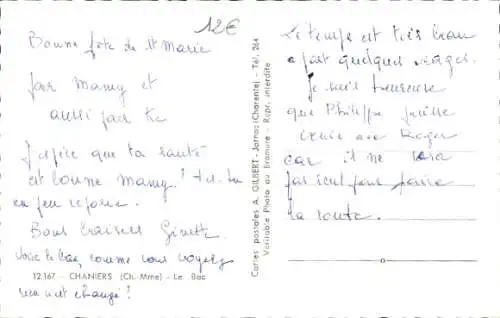 12€
Bonne fête de St Marie
par Mamy et
aussi par te
J'espère que ta santé
est bonne Mamy!
en peu repose.
Bons baisers Ginette
Voici le bac, comme vous voyez
12.167 - CHANIERS (Ch.-Mme) - Le Bac
rien n'est changé!
Cartes postales A. GILBERT - Jarnac (Charente) - Tél. 264
Véritable Photo au Bromure - Repr. interdite
Le temps est très beau
a part quelques orages.
Je suis heureuse
que Philippe puisse
venir avec Roger
car il ne sera
pas seul pour faire
la route.